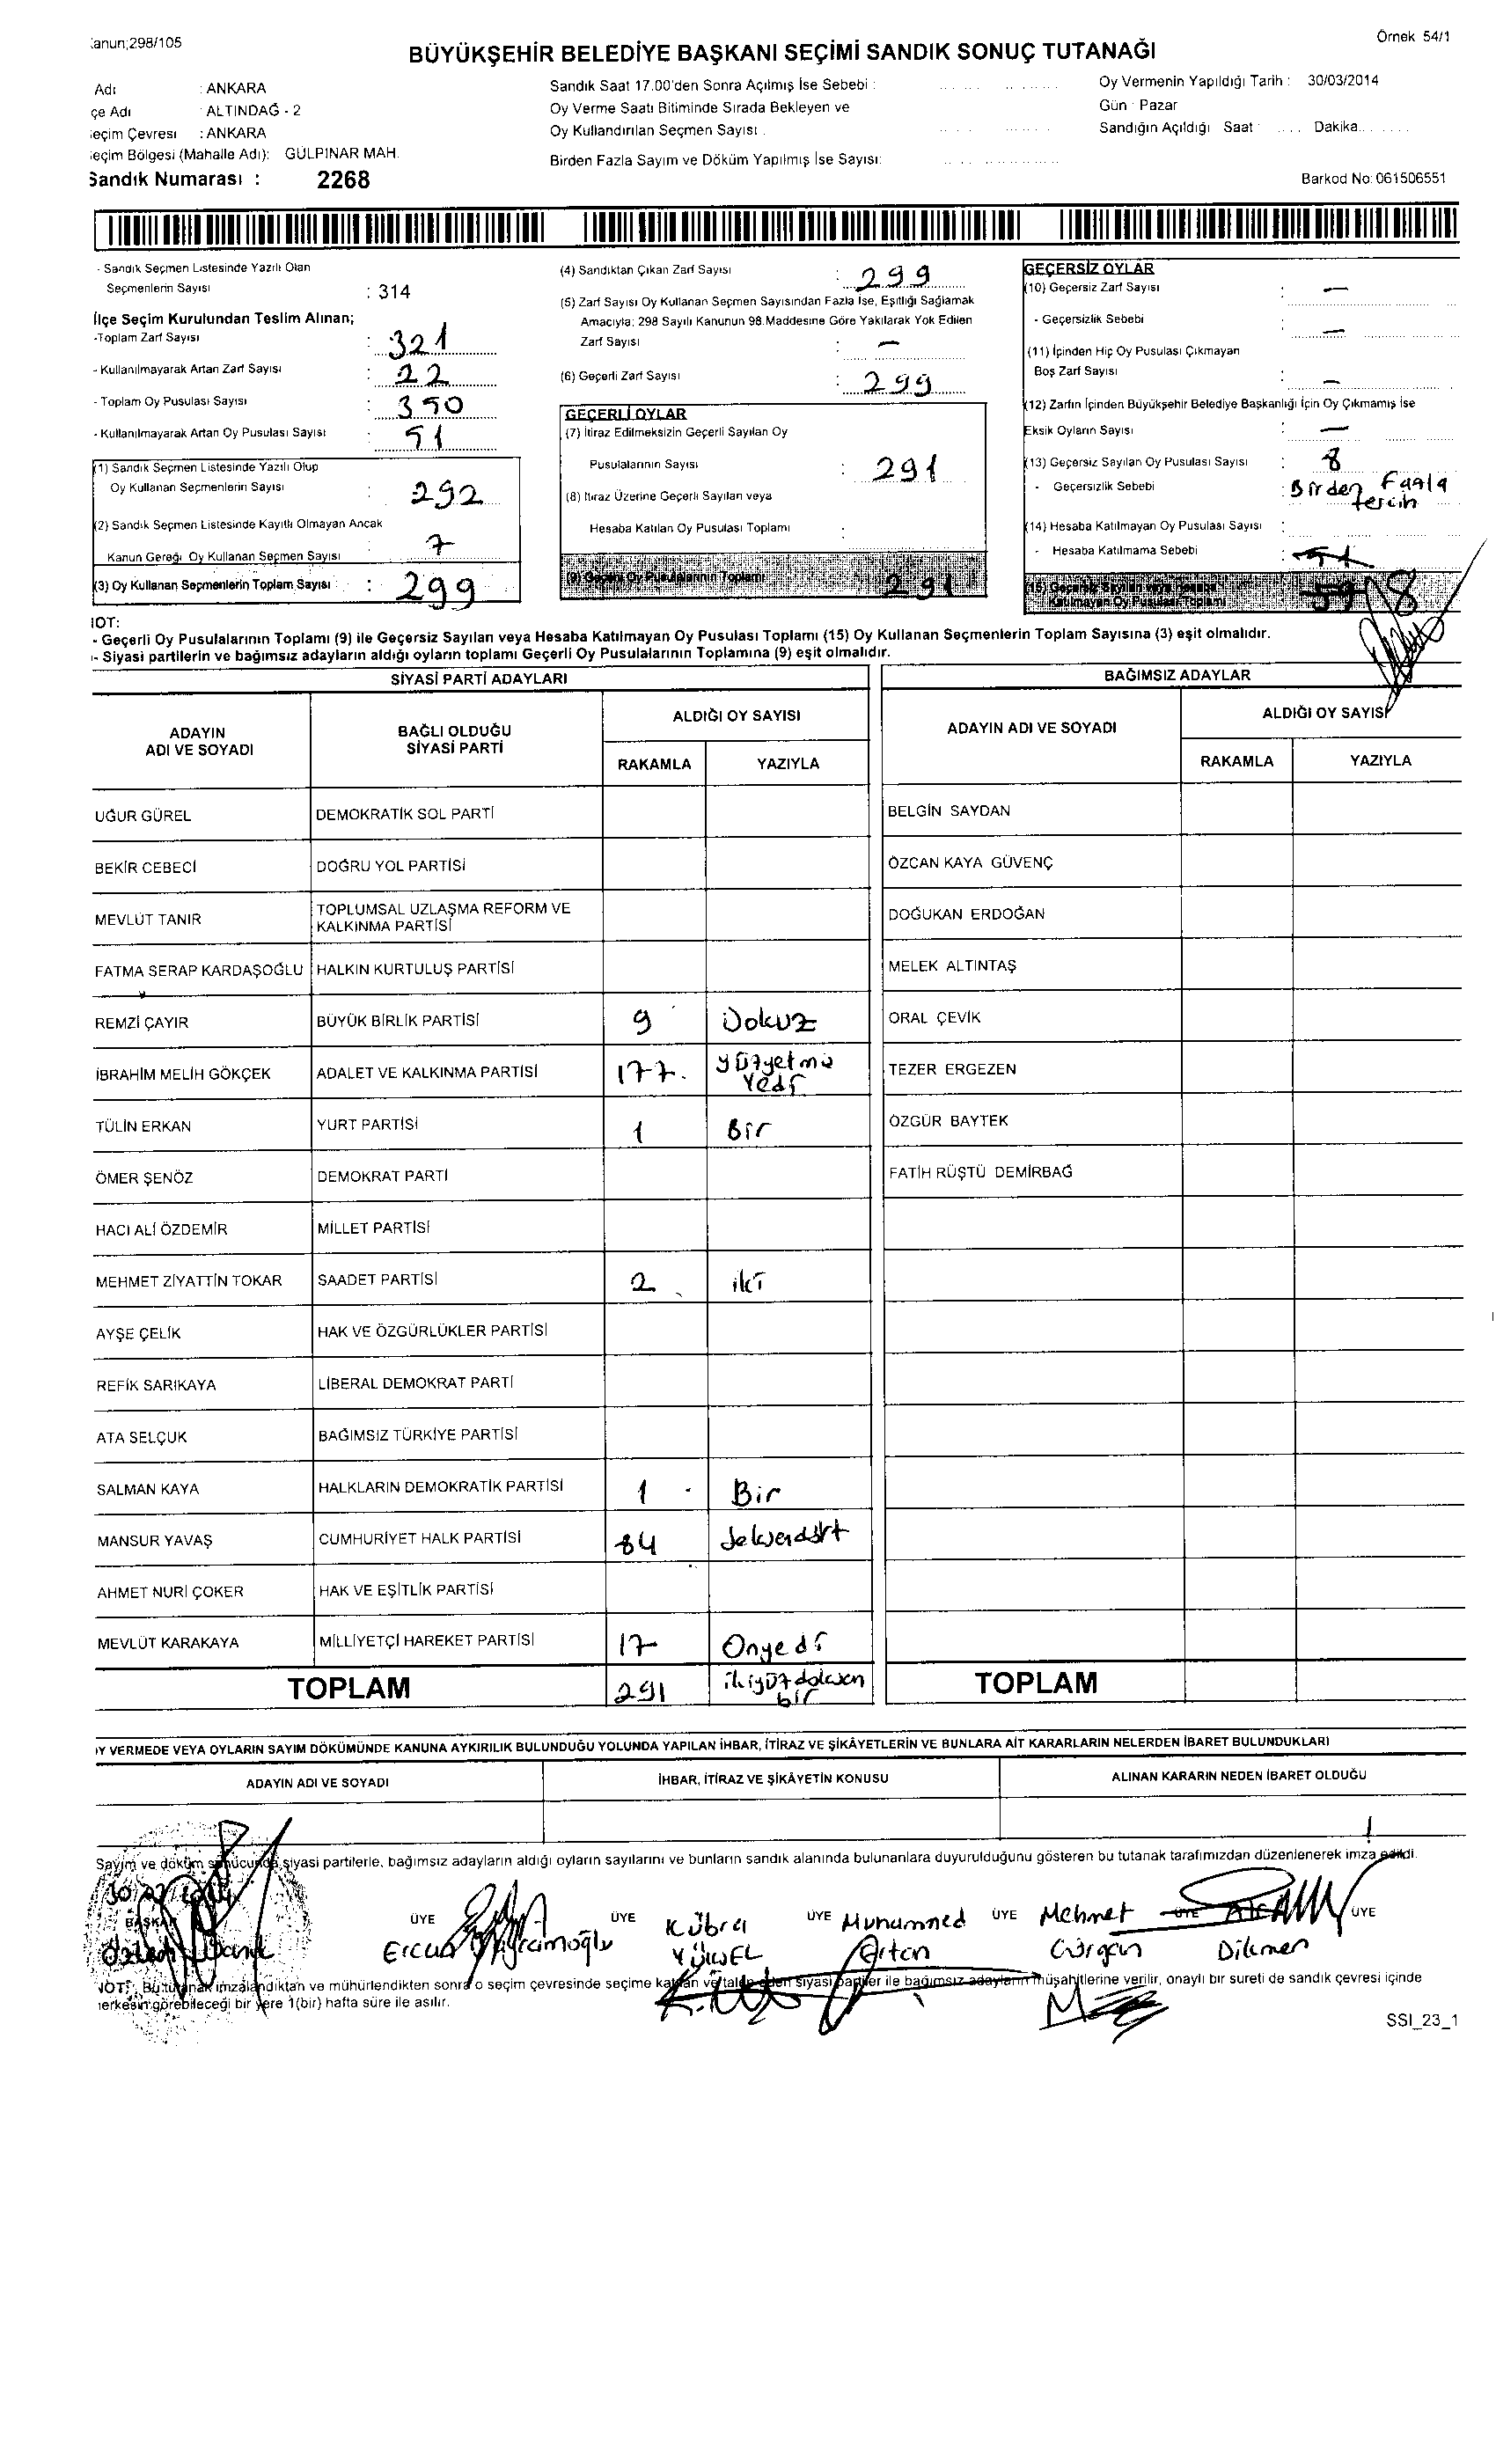 Kanun;298/105
Örnek 54/1
BÜYÜKŞEHİR BELEDİYE BAŞKANI SEÇİMİ SANDIK SONUÇ TUTANAĞI
Adı : ANKARA
çe Adı : ALTINDAĞ - 2
eçim Çevresi : ANKARA
eçim Bölgesi (Mahalle Adı): GÜLPINAR MAH.
Sandık Numarası : 2268
Sandık Saat 17.00'den Sonra Açılmış İse Sebebi :
Oy Verme Saati Bitiminde Sırada Bekleyen ve
Oy Kullandırılan Seçmen Sayısı :
Birden Fazla Sayım ve Döküm Yapılmış İse Sayısı:
Oy Vermenin Yapıldığı Tarih : 30/03/2014
Gün : Pazar
Sandığın Açıldığı Saat : .... Dakika.......
Barkod No: 061506551
- Sandık Seçmen Listesinde Yazılı Olan
Seçmenlerin Sayısı : 314
İlçe Seçim Kurulundan Teslim Alınan;
-Toplam Zarf Sayısı : 321
- Kullanılmayarak Artan Zarf Sayısı : 22
- Toplam Oy Pusulası Sayısı : 350
- Kullanılmayarak Artan Oy Pusulası Sayısı : 51
(1) Sandık Seçmen Listesinde Yazılı Olup
Oy Kullanan Seçmenlerin Sayısı : 292
(2) Sandık Seçmen Listesinde Kayıtlı Olmayan Ancak
Kanun Gereği Oy Kullanan Seçmen Sayısı : 7
(3) Oy Kullanan Seçmenlerin Toplam Sayısı : 299
(4) Sandıktan Çıkan Zarf Sayısı : 299
(5) Zarf Sayısı Oy Kullanan Seçmen Sayısından Fazla İse, Eşitliği Sağlamak
Amacıyla; 298 Sayılı Kanunun 98.Maddesine Göre Yakılarak Yok Edilen
Zarf Sayısı : -
(6) Geçerli Zarf Sayısı : 299
GEÇERLİ OYLAR
(7) İtiraz Edilmeksizin Geçerli Sayılan Oy
Pusulalarının Sayısı : 291
(8) İtiraz Üzerine Geçerli Sayılan veya
Hesaba Katılan Oy Pusulası Toplamı :
(9) Geçerli Oy Pusulalarının Toplamı 291
GEÇERSİZ OYLAR
(10) Geçersiz Zarf Sayısı : -
- Geçersizlik Sebebi : -
(11) İçinden Hiç Oy Pusulası Çıkmayan
Boş Zarf Sayısı : -
(12) Zarfın İçinden Büyükşehir Belediye Başkanlığı İçin Oy Çıkmamış İse
Eksik Oyların Sayısı : -
(13) Geçersiz Sayılan Oy Pusulası Sayısı : 8
- Geçersizlik Sebebi : Birden Fazla
tercih
(14) Hesaba Katılmayan Oy Pusulası Sayısı :
- Hesaba Katılmama Sebebi : 51
(15) Geçersiz Sayılan veya Hesaba
Katılmayan Oy Pusulası Toplamı 8
NOT:
- Geçerli Oy Pusulalarının Toplamı (9) ile Geçersiz Sayılan veya Hesaba Katılmayan Oy Pusulası Toplamı (15) Oy Kullanan Seçmenlerin Toplam Sayısına (3) eşit olmalıdır.
- Siyasi partilerin ve bağımsız adayların aldığı oyların toplamı Geçerli Oy Pusulalarının Toplamına (9) eşit olmalıdır.
SİYASİ PARTİ ADAYLARI
ADAYIN
ADI VE SOYADI
BAĞLI OLDUĞU
SİYASİ PARTİ
ALDIĞI OY SAYISI
RAKAMLA YAZIYLA
UĞUR GÜREL DEMOKRATİK SOL PARTİ
BEKİR CEBECİ DOĞRU YOL PARTİSİ
MEVLÜT TANIR TOPLUMSAL UZLAŞMA REFORM VE
KALKINMA PARTİSİ
FATMA SERAP KARDAŞOĞLU HALKIN KURTULUŞ PARTİSİ
REMZİ ÇAYIR BÜYÜK BİRLİK PARTİSİ 9 Dokuz
İBRAHİM MELİH GÖKÇEK ADALET VE KALKINMA PARTİSİ 177. yüzyetmiş
Yedi
TÜLİN ERKAN YURT PARTİSİ 1 Bir
ÖMER ŞENÖZ DEMOKRAT PARTİ
HACI ALİ ÖZDEMİR MİLLET PARTİSİ
MEHMET ZİYATTİN TOKAR SAADET PARTİSİ 2 iki
AYŞE ÇELİK HAK VE ÖZGÜRLÜKLER PARTİSİ
REFİK SARIKAYA LİBERAL DEMOKRAT PARTİ
ATA SELÇUK BAĞIMSIZ TÜRKİYE PARTİSİ
SALMAN KAYA HALKLARIN DEMOKRATİK PARTİSİ 1 Bir
MANSUR YAVAŞ CUMHURİYET HALK PARTİSİ 84 Seksendört
AHMET NURİ ÇOKER HAK VE EŞİTLİK PARTİSİ
MEVLÜT KARAKAYA MİLLİYETÇİ HAREKET PARTİSİ 17 Onyedi
TOPLAM 291 ikiyüzdoksen
bir
BAĞIMSIZ ADAYLAR
ADAYIN ADI VE SOYADI
ALDIĞI OY SAYISI
RAKAMLA YAZIYLA
BELGİN SAYDAN
ÖZCAN KAYA GÜVENÇ
DOĞUKAN ERDOĞAN
MELEK ALTINTAŞ
ORAL ÇEVİK
TEZER ERGEZEN
ÖZGÜR BAYTEK
FATİH RÜŞTÜ DEMİRBAĞ
TOPLAM
OY VERMEDE VEYA OYLARIN SAYIM DÖKÜMÜNDE KANUNA AYKIRILIK BULUNDUĞU YOLUNDA YAPILAN İHBAR, İTİRAZ VE ŞİKÂYETLERİN VE BUNLARA AİT KARARLARIN NELERDEN İBARET BULUNDUKLARI
ADAYIN ADI VE SOYADI İHBAR, İTİRAZ VE ŞİKÂYETİN KONUSU ALINAN KARARIN NEDEN İBARET OLDUĞU
Sayım ve döküm sonucunda siyasi partilerle, bağımsız adayların aldığı oyların sayılarını ve bunların sandık alanında bulunanlara duyurulduğunu gösteren bu tutanak tarafımızdan düzenlenerek imza edildi.
BAŞKAN ÜYE ÜYE ÜYE ÜYE ÜYE ÜYE
Özlem Ercan Bayramoğlu
Kübra
YÜKSEL
Muhammed
Artan
Mehmet
Gürgan
Dikmen
NOT: Bu tutanak imzalandıktan ve mühürlendikten sonra o seçim çevresinde seçime katılan ve talep eden siyasi partiler ile bağımsız adayların müşahitlerine verilir, onaylı bir sureti de sandık çevresi içinde
herkesin görebileceği bir yere 1(bir) hafta süre ile asılır.
SSI_23_1